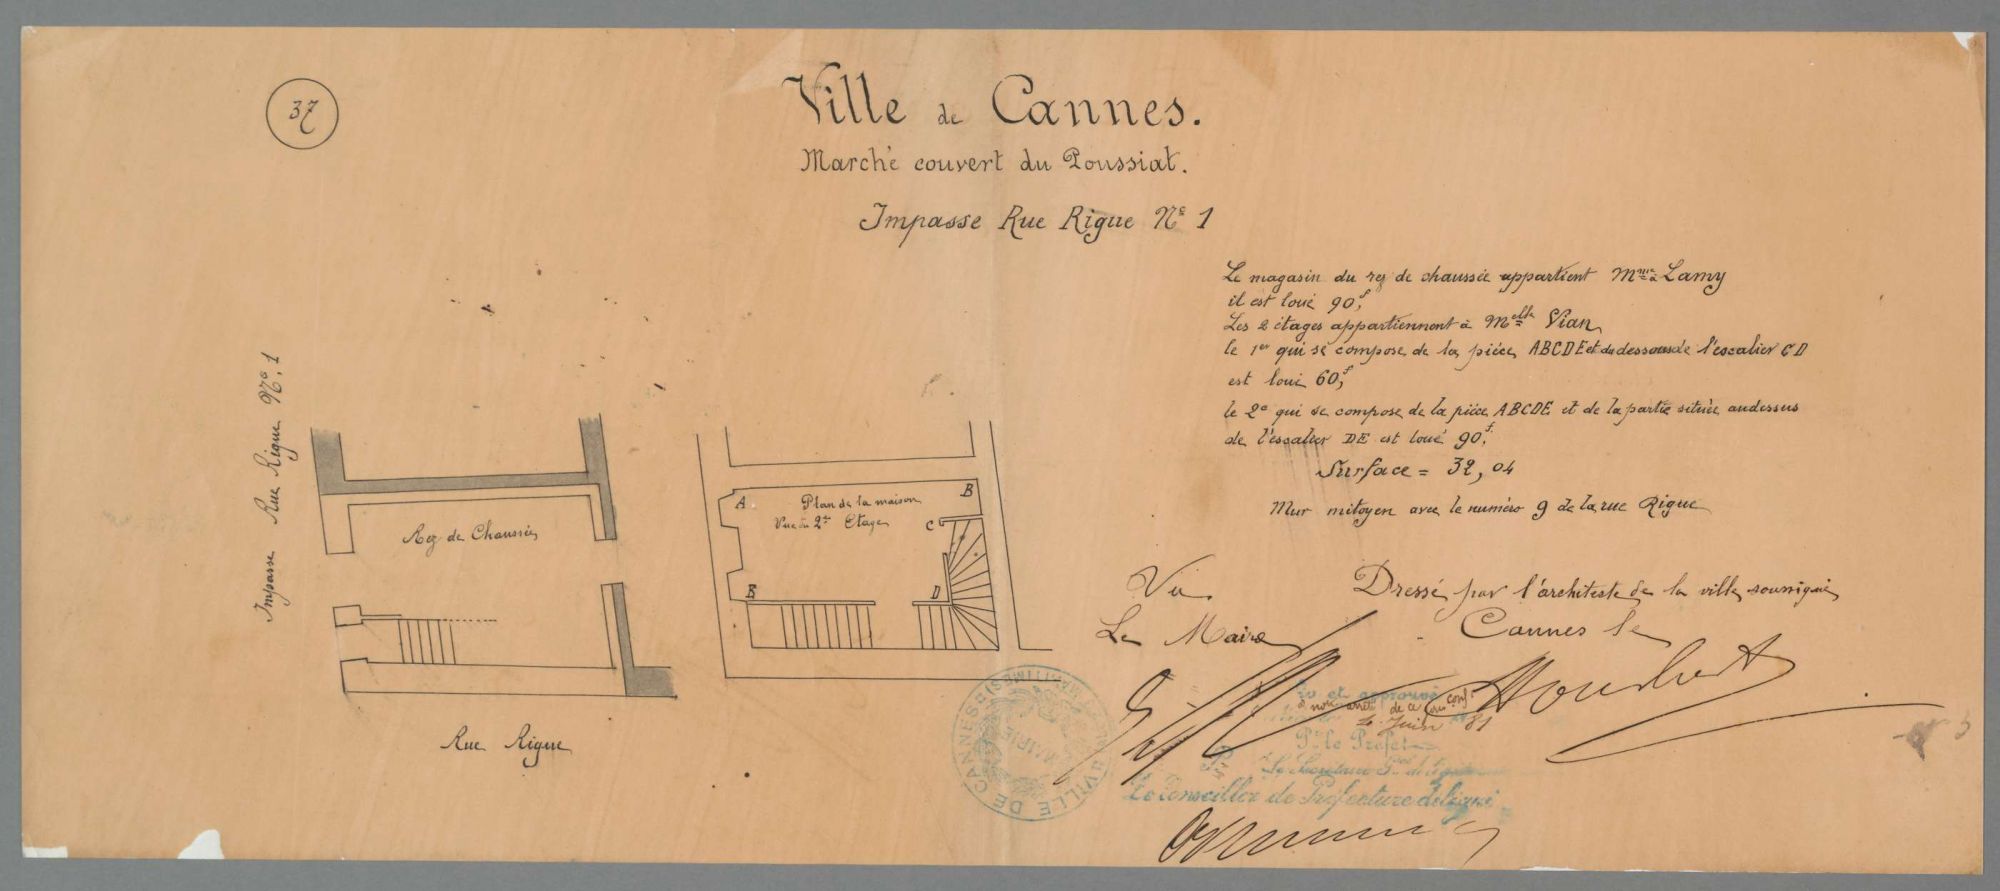 37
Ville de Cannes.
Marché couvert du Poussiat.
Impasse Rue Rigue Nº 1
Le magasin du rez de chaussée appartient Mme à Lamy
il est loué 90f,
Les 2 étages appartiennent à Melle Vian
le 1er qui se compose de la pièce ABCDE et du dessous de l'escalier CD
est loué 60f,
le 2e qui se compose de la pièce ABCDE et de la partie située audessus
de l'escalier DE est loué 90f.
Surface = 32,04
Mur mitoyen avec le numéro 9 de la rue Rigue
Impasse Rue Rigue Nº 1
Rez de Chaussée
Rue Rigue
A
B
Plan de la maison
Vue du 2e Etage
C
E
D
Vu
Le Maire
Dressé par l'architecte de la ville soussigné
Cannes le
Vu et approuvé
Juin 81
Pr le Préfet
Le Conseiller de Préfecture délégué
VILLE DE CANNES
MAIRIE